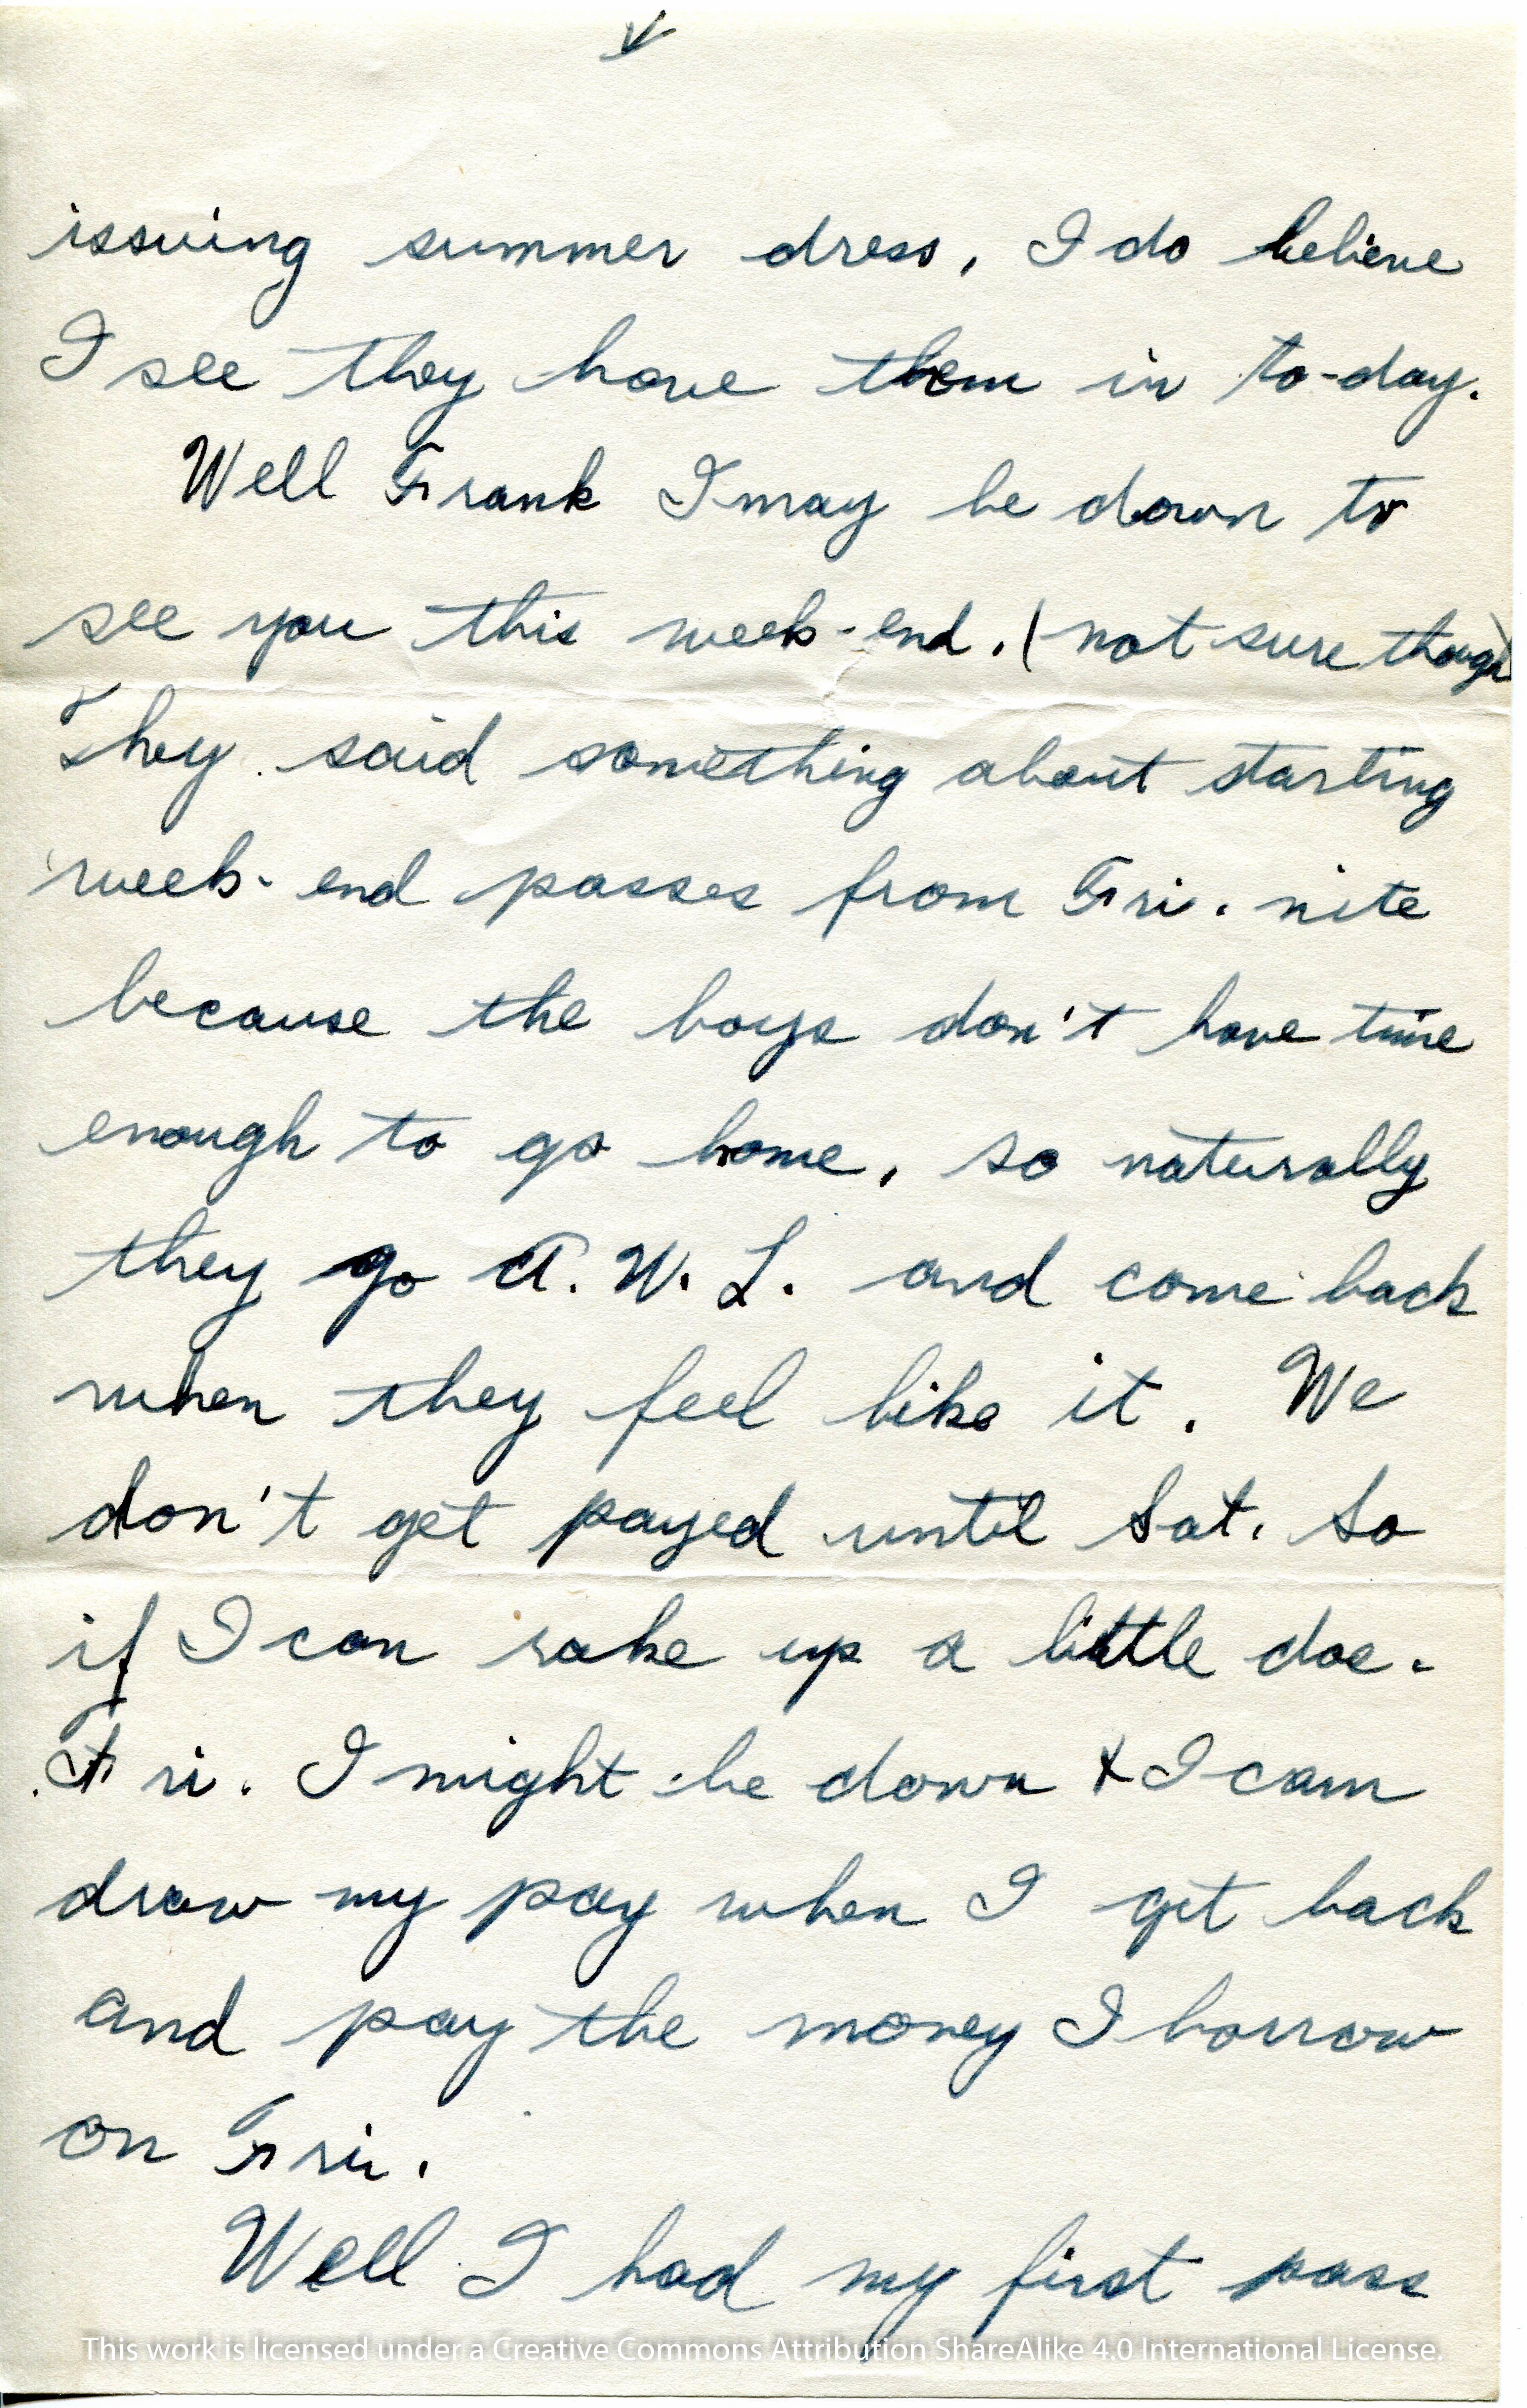 issuing summer dress, I do believe
I see they have them in to-day.
Well Frank I may be down to
see you this week-end. (not sure though)
They said something about starting
week-end passes from Fri. nite
because the boys don't have time
enough to go home, so naturally
they go A.W.L. and come back
when they feel like it. We
don't get payed until Sat. So
if I can rake up a little doe.
Fri. I might be down & I can
draw my pay when I get back
and pay the money I borrow
on Fri.
Well I had my first pass
This work is licensed under a Creative Commons Attribution ShareAlike 4.0 International License.